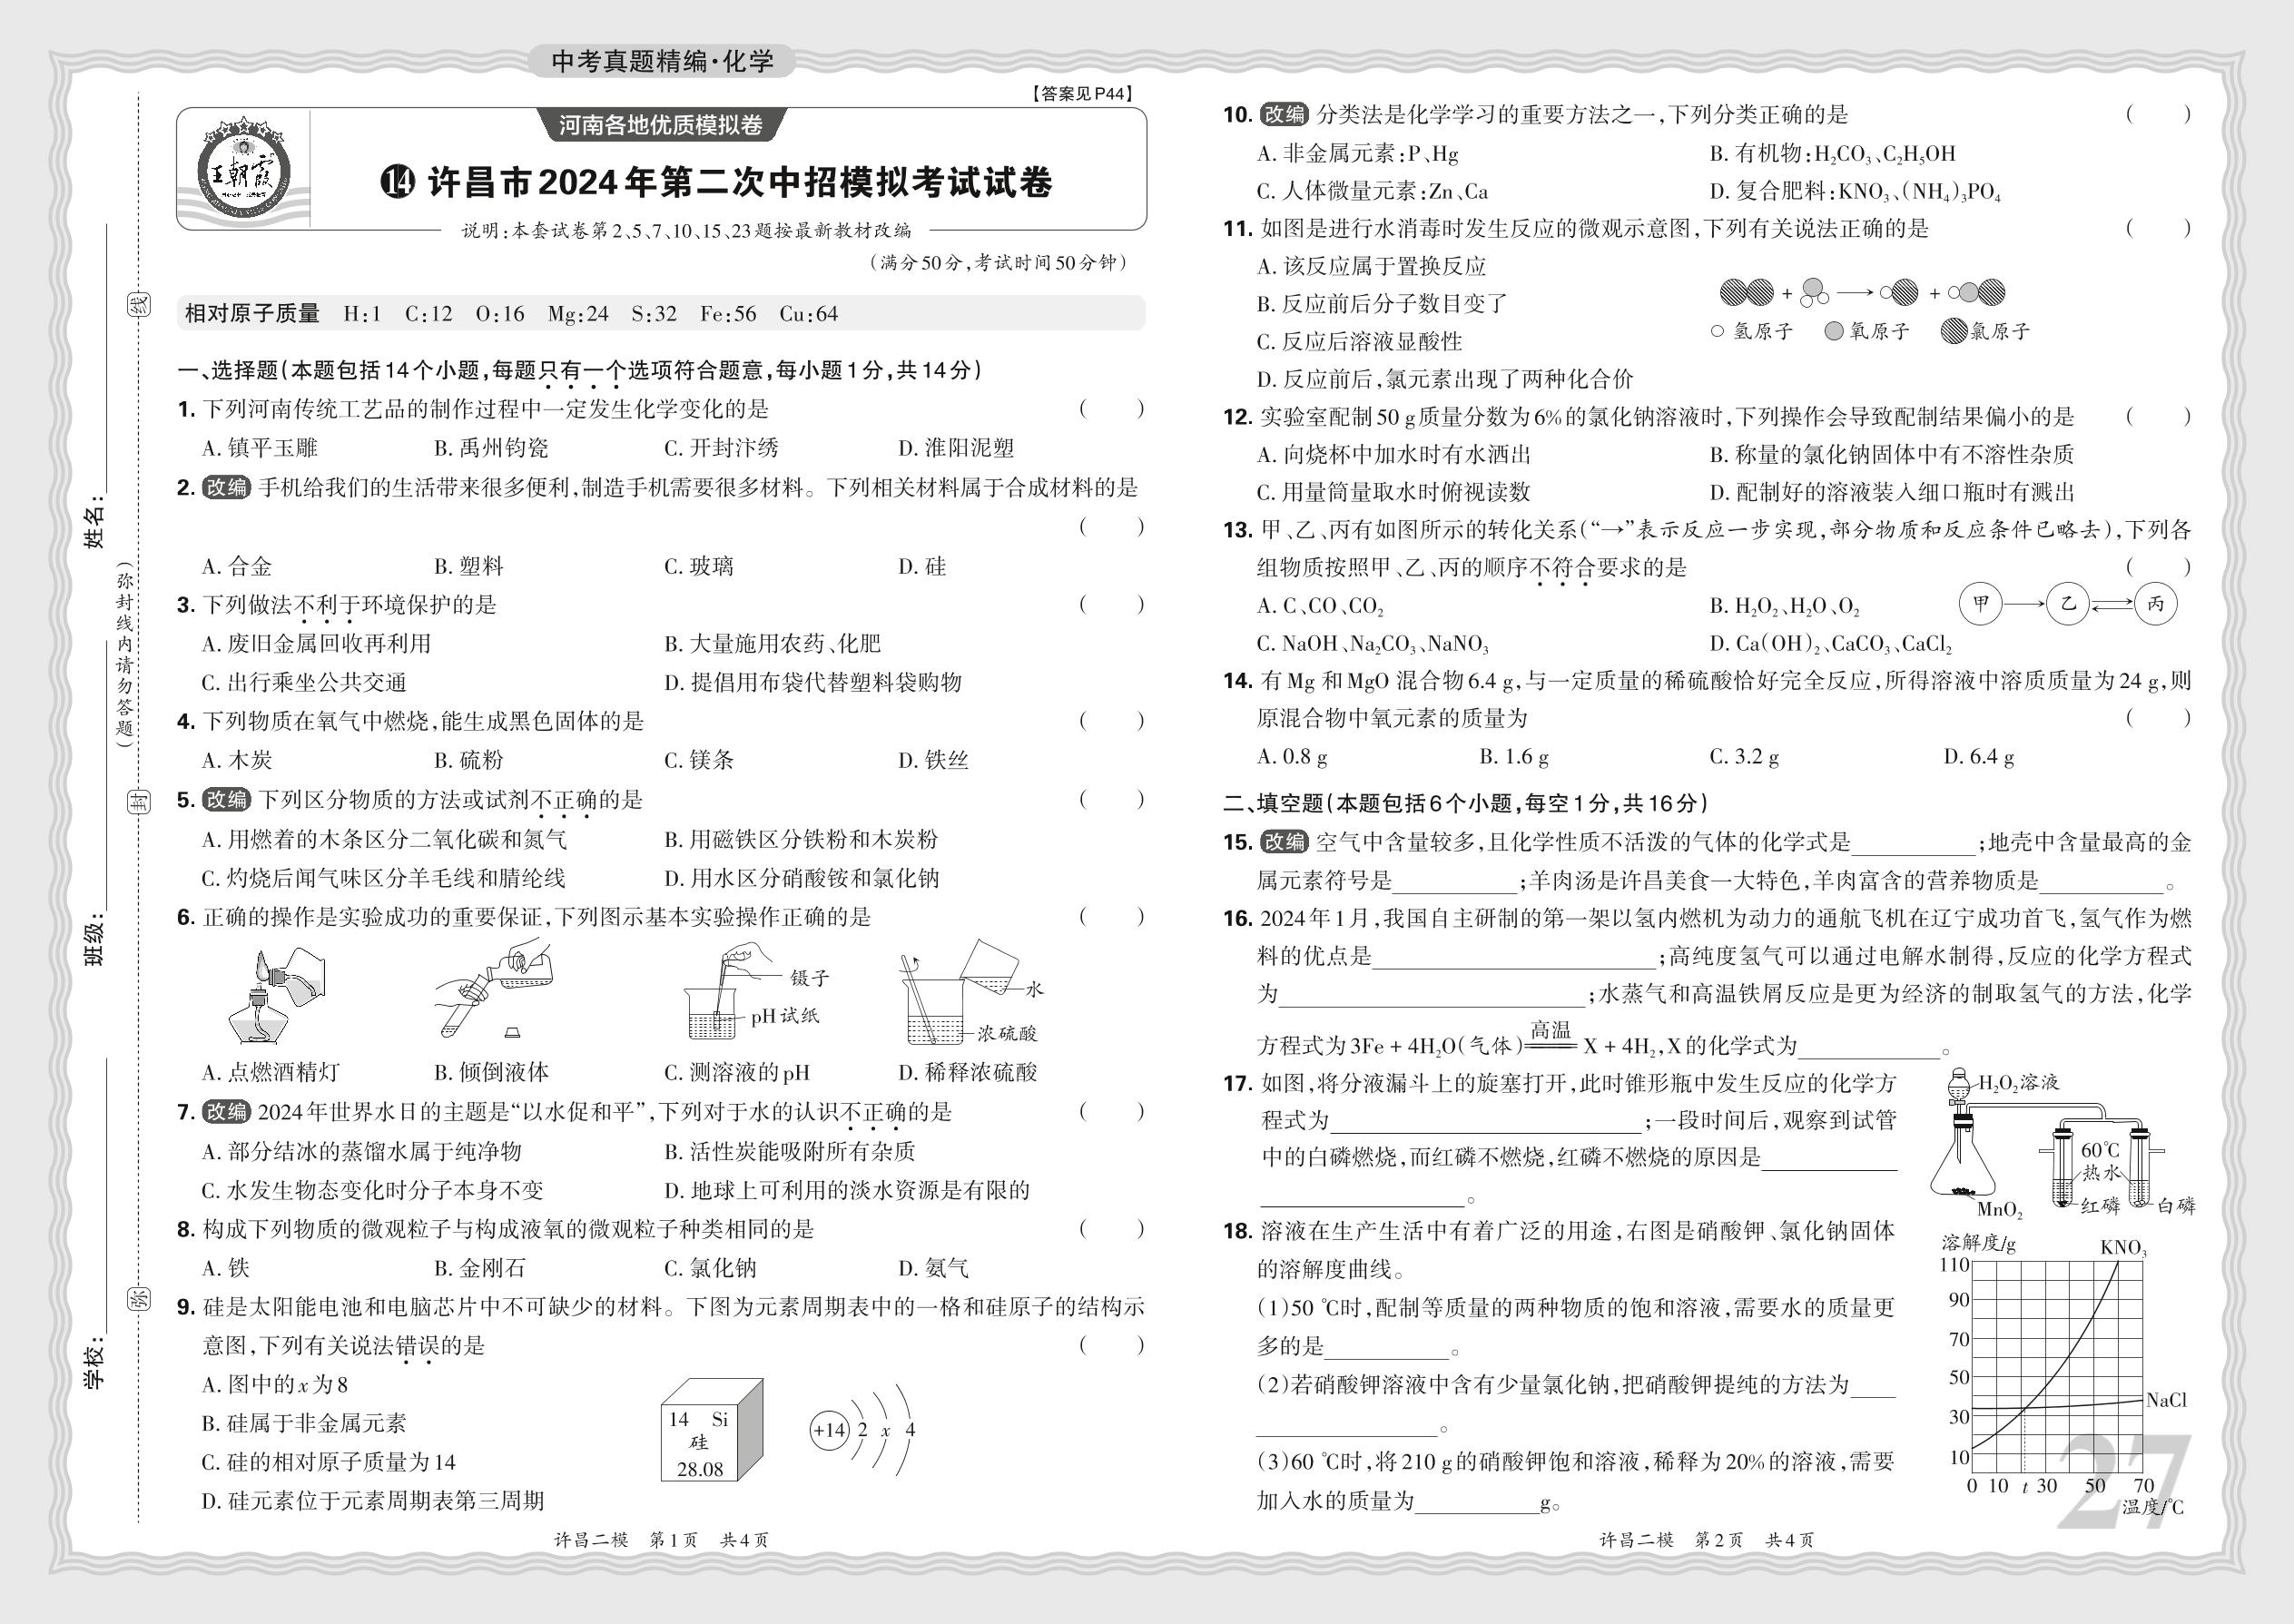 中考真题精编·化学
【答案见P44】
河南各地优质模拟卷
王朝霞
14 许昌市2024年第二次中招模拟考试试卷
说明:本套试卷第2、5、7、10、15、23题按最新教材改编
(满分50分,考试时间50分钟)
相对原子质量 H:1 C:12 O:16 Mg:24 S:32 Fe:56 Cu:64
一、选择题(本题包括14个小题,每题只有一个选项符合题意,每小题1分,共14分)
1. 下列河南传统工艺品的制作过程中一定发生化学变化的是 ( )
A. 镇平玉雕 B. 禹州钧瓷 C. 开封汴绣 D. 淮阳泥塑
2. 改编 手机给我们的生活带来很多便利,制造手机需要很多材料。下列相关材料属于合成材料的是
( )
A. 合金 B. 塑料 C. 玻璃 D. 硅
3. 下列做法不利于环境保护的是 ( )
A. 废旧金属回收再利用 B. 大量施用农药、化肥
C. 出行乘坐公共交通 D. 提倡用布袋代替塑料袋购物
4. 下列物质在氧气中燃烧,能生成黑色固体的是 ( )
A. 木炭 B. 硫粉 C. 镁条 D. 铁丝
5. 改编 下列区分物质的方法或试剂不正确的是 ( )
A. 用燃着的木条区分二氧化碳和氮气 B. 用磁铁区分铁粉和木炭粉
C. 灼烧后闻气味区分羊毛线和腈纶线 D. 用水区分硝酸铵和氯化钠
6. 正确的操作是实验成功的重要保证,下列图示基本实验操作正确的是 ( )
镊子
pH试纸
水
浓硫酸
A. 点燃酒精灯 B. 倾倒液体 C. 测溶液的pH D. 稀释浓硫酸
7. 改编 2024年世界水日的主题是“以水促和平”,下列对于水的认识不正确的是 ( )
A. 部分结冰的蒸馏水属于纯净物 B. 活性炭能吸附所有杂质
C. 水发生物态变化时分子本身不变 D. 地球上可利用的淡水资源是有限的
8. 构成下列物质的微观粒子与构成液氧的微观粒子种类相同的是 ( )
A. 铁 B. 金刚石 C. 氯化钠 D. 氨气
9. 硅是太阳能电池和电脑芯片中不可缺少的材料。下图为元素周期表中的一格和硅原子的结构示
意图,下列有关说法错误的是 ( )
A. 图中的x为8
B. 硅属于非金属元素
C. 硅的相对原子质量为14
D. 硅元素位于元素周期表第三周期
14 Si
硅
28.08
+14 2 x 4
许昌二模 第1页 共4页
学校:
班级:
姓名:
(弥封线内请勿答题)
弥
封
线
10. 改编 分类法是化学学习的重要方法之一,下列分类正确的是 ( )
A. 非金属元素:P、Hg B. 有机物:H₂CO₃、C₂H₅OH
C. 人体微量元素:Zn、Ca D. 复合肥料:KNO₃、(NH₄)₃PO₄
11. 如图是进行水消毒时发生反应的微观示意图,下列有关说法正确的是 ( )
A. 该反应属于置换反应
B. 反应前后分子数目变了
C. 反应后溶液显酸性
D. 反应前后,氯元素出现了两种化合价
+ → +
氢原子 氧原子 氯原子
12. 实验室配制50 g质量分数为6%的氯化钠溶液时,下列操作会导致配制结果偏小的是 ( )
A. 向烧杯中加水时有水洒出 B. 称量的氯化钠固体中有不溶性杂质
C. 用量筒量取水时俯视读数 D. 配制好的溶液装入细口瓶时有溅出
13. 甲、乙、丙有如图所示的转化关系(“→”表示反应一步实现,部分物质和反应条件已略去),下列各
组物质按照甲、乙、丙的顺序不符合要求的是 ( )
A. C、CO、CO₂ B. H₂O₂、H₂O、O₂
C. NaOH、Na₂CO₃、NaNO₃ D. Ca(OH)₂、CaCO₃、CaCl₂
甲 乙 丙
14. 有Mg和MgO混合物6.4 g,与一定质量的稀硫酸恰好完全反应,所得溶液中溶质质量为24 g,则
原混合物中氧元素的质量为 ( )
A. 0.8 g B. 1.6 g C. 3.2 g D. 6.4 g
二、填空题(本题包括6个小题,每空1分,共16分)
15. 改编 空气中含量较多,且化学性质不活泼的气体的化学式是________;地壳中含量最高的金
属元素符号是________;羊肉汤是许昌美食一大特色,羊肉富含的营养物质是________。
16. 2024年1月,我国自主研制的第一架以氢内燃机为动力的通航飞机在辽宁成功首飞,氢气作为燃
料的优点是________;高纯度氢气可以通过电解水制得,反应的化学方程式
为________;水蒸气和高温铁屑反应是更为经济的制取氢气的方法,化学
方程式为3Fe + 4H₂O(气体)═高温═X + 4H₂,X的化学式为________。
17. 如图,将分液漏斗上的旋塞打开,此时锥形瓶中发生反应的化学方
程式为________;一段时间后,观察到试管
中的白磷燃烧,而红磷不燃烧,红磷不燃烧的原因是________
________。
H₂O₂溶液
60℃
热水
MnO₂
红磷
白磷
18. 溶液在生产生活中有着广泛的用途,右图是硝酸钾、氯化钠固体
的溶解度曲线。
(1)50 ℃时,配制等质量的两种物质的饱和溶液,需要水的质量更
多的是________。
(2)若硝酸钾溶液中含有少量氯化钠,把硝酸钾提纯的方法为____
________。
(3)60 ℃时,将210 g的硝酸钾饱和溶液,稀释为20%的溶液,需要
加入水的质量为________g。
溶解度/g
KNO₃
110
90
70
50
30
10
NaCl
0 10 t 30 50 70
温度/℃
27
许昌二模 第2页 共4页